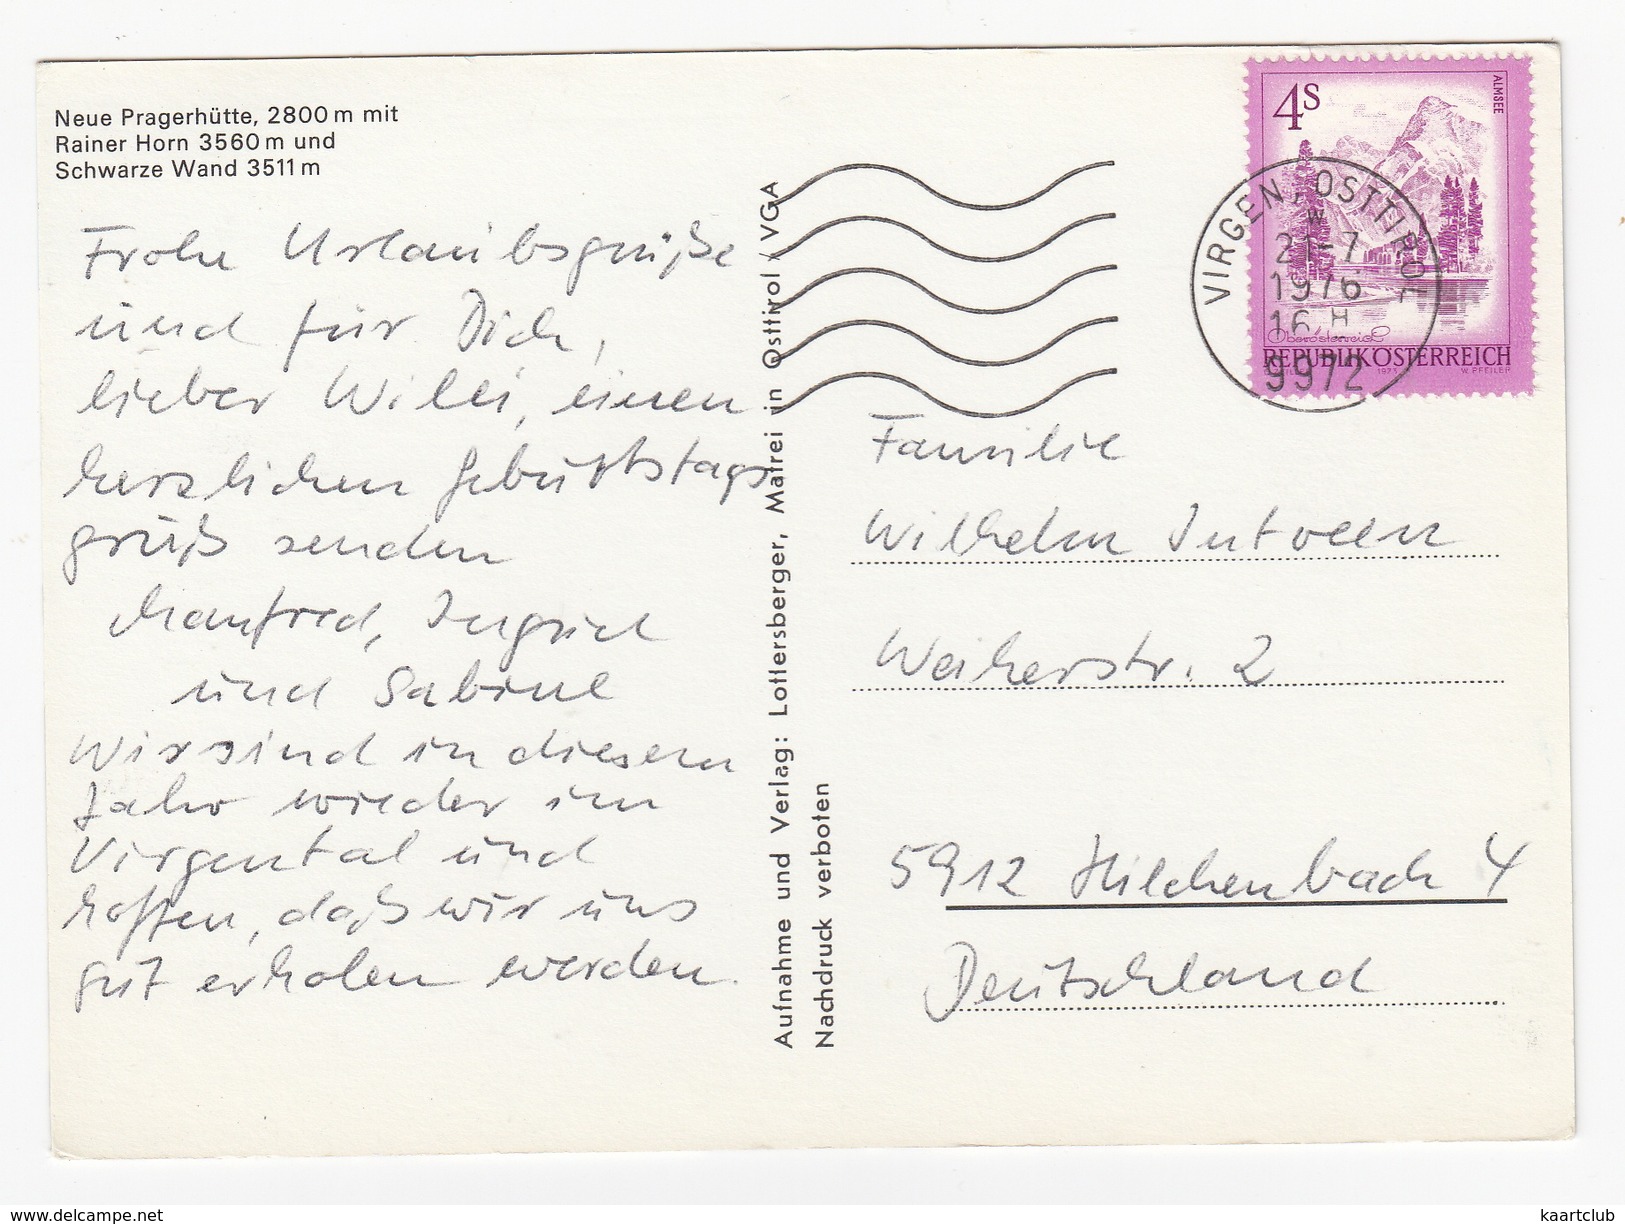 Neue Pragerhütte, 2800 m mit
Rainer Horn 3560 m und
Schwarze Wand 3511 m
Frohe Urlaubsgrüße
und für Dich,
lieber Willi, einen
herzlichen Geburtstags
gruß senden
Manfred, Ingrid
und Sabine
Wir sind in diesem
Jahr wieder im
Virgental und
hoffen, daß wir uns
gut erholen werden.
Aufnahme und Verlag: Lottersberger, Matrei in Osttirol / VGA
Nachdruck verboten
4S
ALMSEE
Oberösterreich
REPUBLIK ÖSTERREICH
1973 W. PFEILER
VIRGEN, OSTTIROL
W
21-7
1976
16 H
9972
Familie
Wilhelm
Weiherstr. 2
5912 Hilchenbach 4
Deutschland
www.delcampe.net
kaartclub